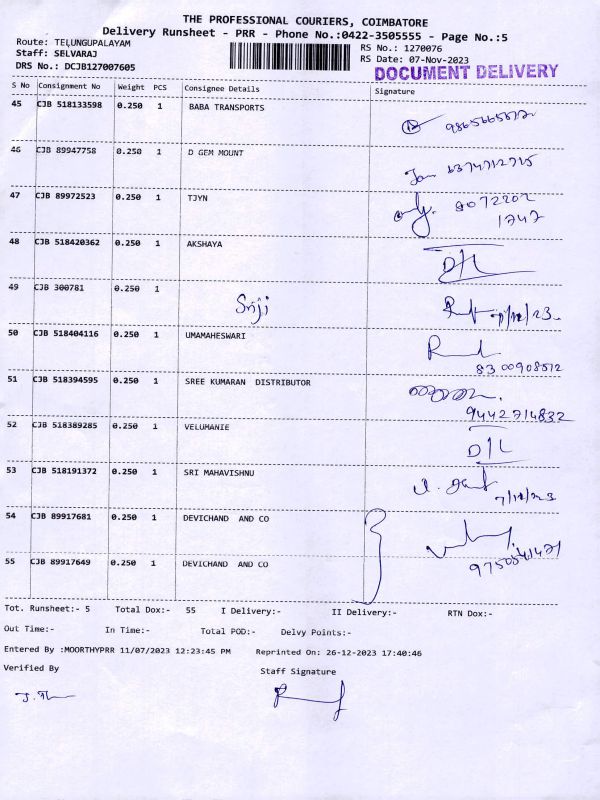 THE PROFESSIONAL COURIERS, COIMBATORE
Delivery Runsheet - PRR - Phone No.:0422-3505555 - Page No.:5
Route: TELUNGUPALAYAM
Staff: SELVARAJ
DRS No.: DCJB127007605
RS No.: 1270076
RS Date: 07-Nov-2023
DOCUMENT DELIVERY
S No Consignment No Weight PCS Consignee Details Signature
45 CJB 518133598 0.250 1 BABA TRANSPORTS
46 CJB 89947758 0.250 1 D GEM MOUNT
47 CJB 89972523 0.250 1 TJYN 9072202
1747
48 CJB 518420362 0.250 1 AKSHAYA D/L
49 CJB 300781 0.250 1 Sriji 7/11/23
50 CJB 518404116 0.250 1 UMAMAHESWARI
8300908512
51 CJB 518394595 0.250 1 SREE KUMARAN DISTRIBUTOR
9442714832
52 CJB 518389285 0.250 1 VELUMANIE D/L
53 CJB 518191372 0.250 1 SRI MAHAVISHNU
7/11/23
54 CJB 89917681 0.250 1 DEVICHAND AND CO
55 CJB 89917649 0.250 1 DEVICHAND AND CO
Tot. Runsheet:- 5 Total Dox:- 55 I Delivery:- II Delivery:- RTN Dox:-
Out Time:- In Time:- Total POD:- Delvy Points:-
Entered By :MOORTHYPRR 11/07/2023 12:23:45 PM Reprinted On: 26-12-2023 17:40:46
Verified By Staff Signature